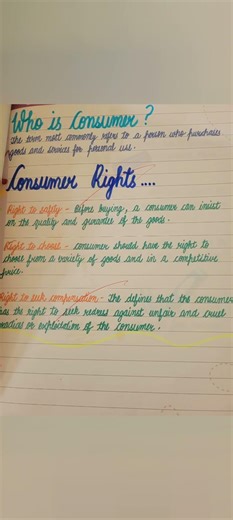 Who is Consumer ?
The term most commonly refers to a person who purchases
goods and services for personal use.
Consumer Rights....
Right to safety - Before buying, a consumer can insist
on the quality and guarantee of the goods.
Right to choose - consumer should have the right to
choose from a variety of goods and in a competitive
price.
Right to seek compensation - The defines that the consumer
has the right to seek redress against unfair and cruel
practices or exploitation of the consumer.